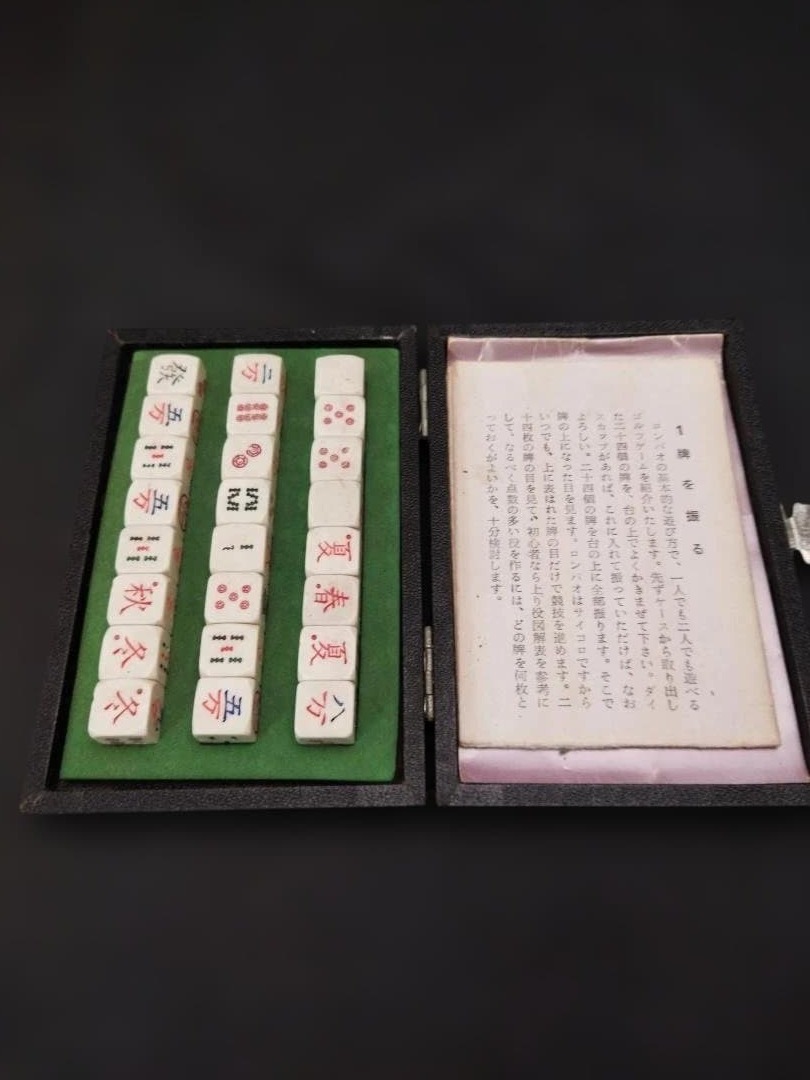 發
五万
五万
秋
冬
冬
二万
五万
夏
春
夏
八万
1 牌を振る
ロンパオの基本的な遊び方で、一人でも二人でも遊べる
ゴルフゲームを紹介いたします。先ずケースから取り出し
た二十四個の牌を、台の上でよくかきまぜて下さい。ダイ
スカップがあれば、これに入れて振っていただけば、なお
よろしい。二十四個の牌を台の上に全部振ります。そこで
牌の上になった目を見ます。ロンパオはサイコロですから
いつでも、上に表はれた牌の目だけで競技を進めます。二
十四枚の牌の目を見て、初心者なら上り役図解表を参考に
して、なるべく点数の多い役を作るには、どの牌を何枚と
っておくがよいかを、十分検討します。